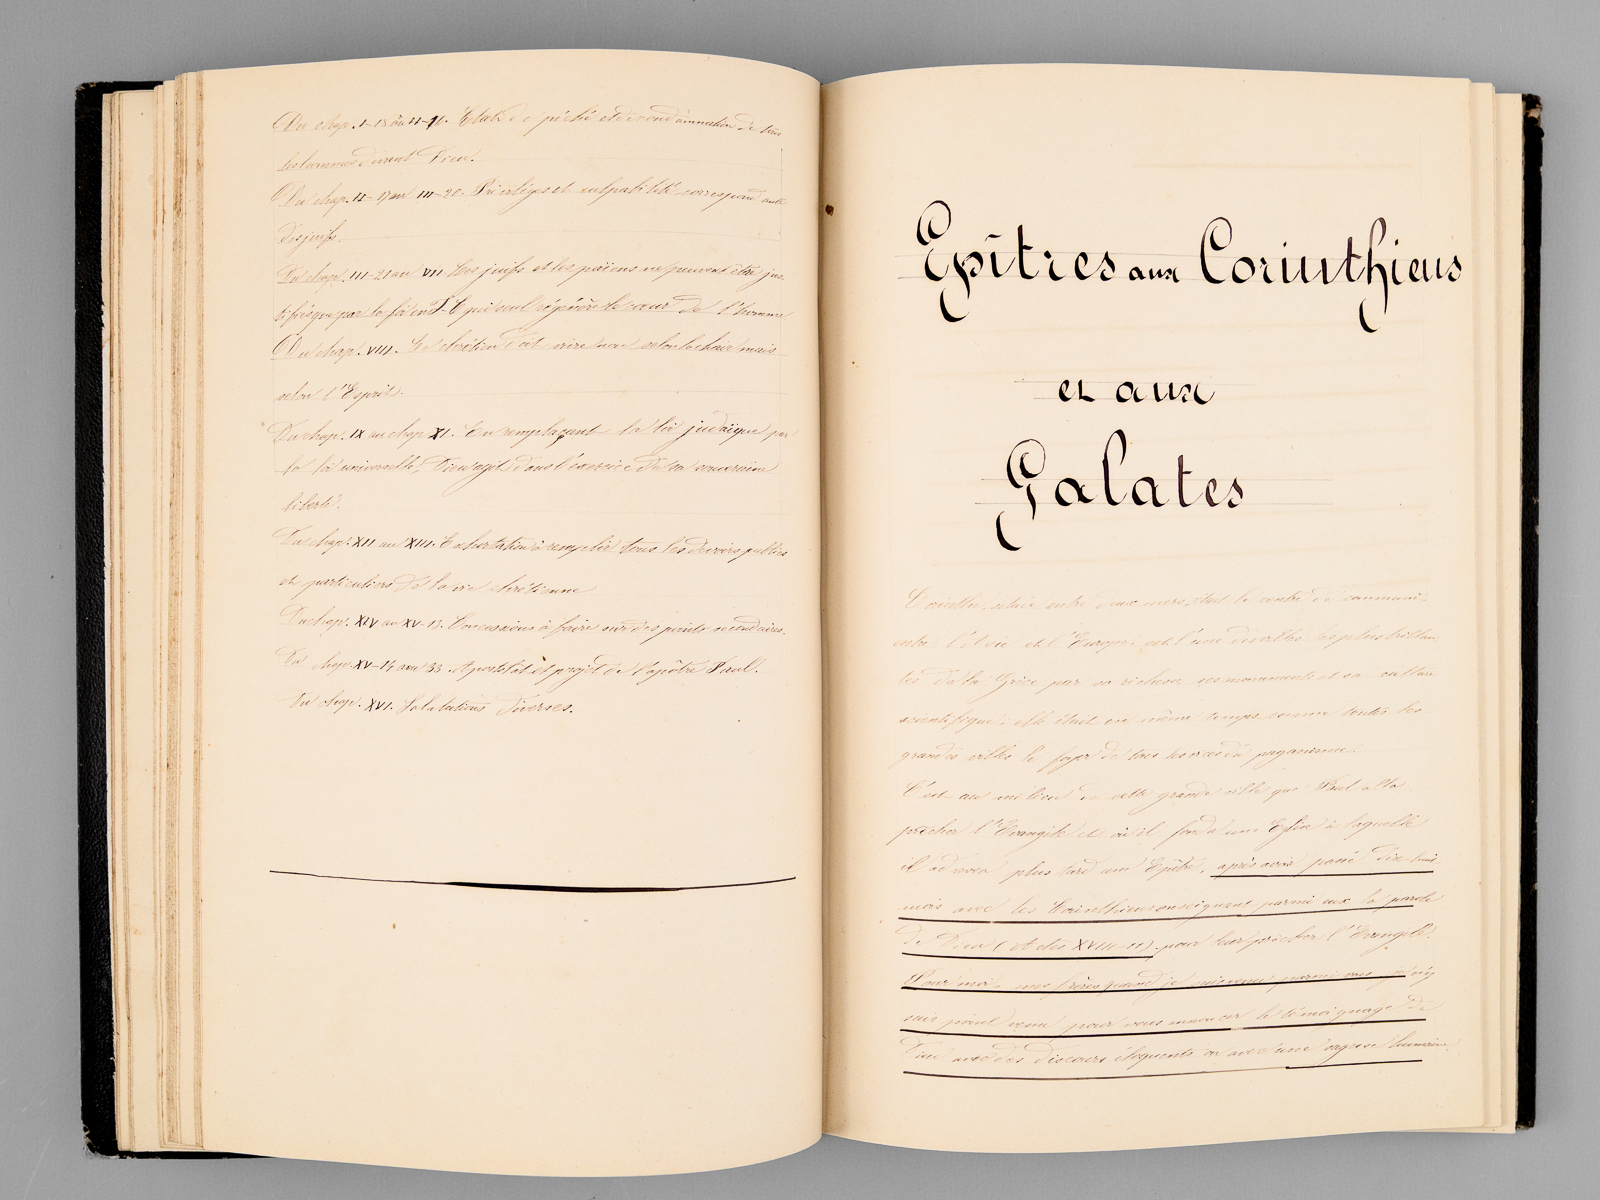 Du chap. I-18 au II-16. Etat de péché et de condamnation de tous
les hommes devant Dieu.
Du chap. II-17 au III-20. Privilèges et culpabilité correspondante
des juifs.
Du chap. III-21 au VII. Les juifs et les païens ne peuvent être jus-
tifiés que par la foi en J-C qui seul régénère le cœur de l'homme.
Du chap. VIII. Le chrétien doit vivre non selon la chair mais
selon l'Esprit.
Du chap. IX au chap XI. En remplaçant la loi judaïque par
la loi universelle, Dieu agit dans l'exercice de sa souveraine
liberté.
Du chap. XII au XIII. Exhortation à remplir tous les devoirs publics
et particuliers de la vie chrétienne
Du chap. XIV au XV-13. Concessions à faire sur des points secondaires.
Du chap. XV-14 au 33. Apostolat et projet de l'apôtre Paul.
Du chap. XVI. Salutations diverses.
Epîtres aux Corinthiens
et aux
Galates
Corinthe, située entre deux mers, était le centre de communi-
entre l'Asie et l'Europe; est l'une des villes les plus brillan-
tes de la Grèce par sa richesse ses monuments et sa culture
scientifique; elle était en même temps comme toutes les
grandes villes le foyer de tous les vices du paganisme.
C'est au milieu de cette grande ville que Paul alla
prêcher l'Evangile et où il fonda une Eglise à laquelle
il adressa plus tard une Epître, après avoir passé dix-huit
mois avec les Corinthiens enseignant parmi eux la parole
de Dieu (Actes XVIII-11). pour leur prêcher l'Evangile.
Pour moi, mes frères, quand je suis venu parmi vous je n'y
suis point venu pour vous annoncer le témoignage de
Dieu avec des discours éloquents ou avec une sagesse humaine.